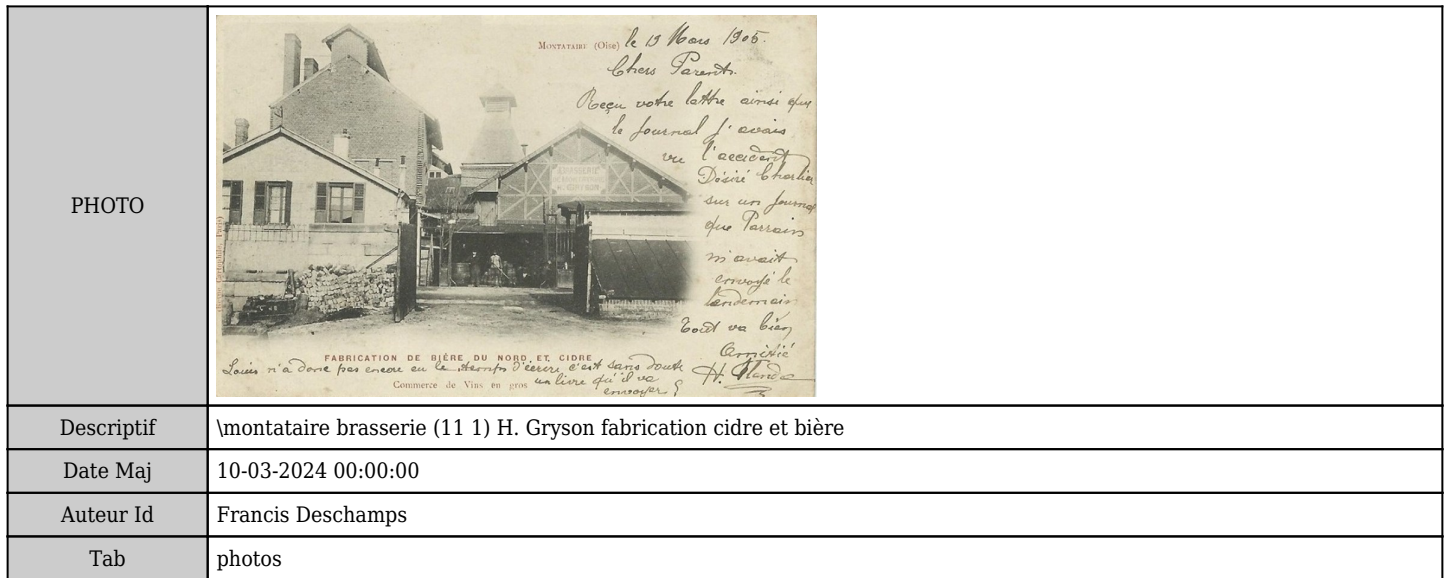 PHOTO
MONTATAIRE (Oise) le 19 Mars 1905.
Chers Parents.
Reçu votre lettre ainsi que
le journal j'avais
vu l'accident
Désiré Charlier
sur un journal
que Parrain
m'avait
envoyé le
lendemain
Tout va bien
Amitié
H.
BRASSERIE
H. GRYSON
FABRICATION DE BIÈRE DU NORD ET CIDRE
Louis n'a donc pas encore eu le temps d'écrire c'est sans doute
Commerce de Vins en gros
un livre qu'il va
envoyer
Descriptif
\montataire brasserie (11 1) H. Gryson fabrication cidre et bière
Date Maj
10-03-2024 00:00:00
Auteur Id
Francis Deschamps
Tab
photos